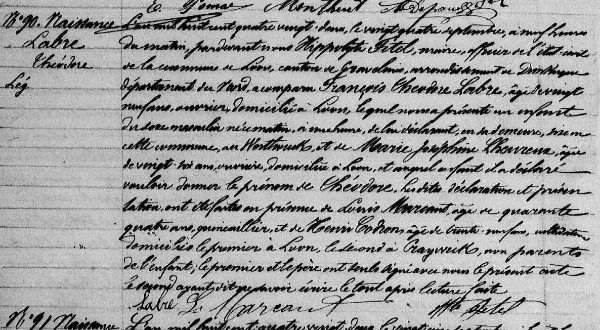 N° 90. Naissance
Labre
Théodore
Lég
L'an mil huit cent quatre vingt-dous, le vingt quatre septembre, à neuf heures
du matin, pardevant nous Hippolyte Fetel, maire, officier de l'état-civil
de la commune de Loon, canton de Gravelines, arrondissement de Dunkerque
département du Nord, a comparu François Théodore Labre, âgé de vingt
neuf ans, ouvrier, domicilié à Loon, lequel nous a présenté un enfant
du sexe masculin né ce matin, à une heure, de lui déclarant, en sa demeure, sise en
cette commune, au et de Marie Joséphine âgée
de vingt-six ans, ouvrière, domiciliée à Loon, et auquel enfant il a déclaré
vouloir donner le prénom de Théodore, les dites déclaration et présen
tation, ont été faites en présence de Louis Marcant, âgé de quarante
quatre ans, quincaillier, et de Henri âgé de trente-neuf ans,
domiciliés le premier à Loon, le second à Craywick, non parents
de l'enfant; le premier et le père ont seuls signé avec nous le présent acte
le second ayant dit ne savoir écrire le tout après lecture faite
Labre L. Marcant Hte Fetel
N° 91 Naissance
L'an mil huit cent quatre vingt